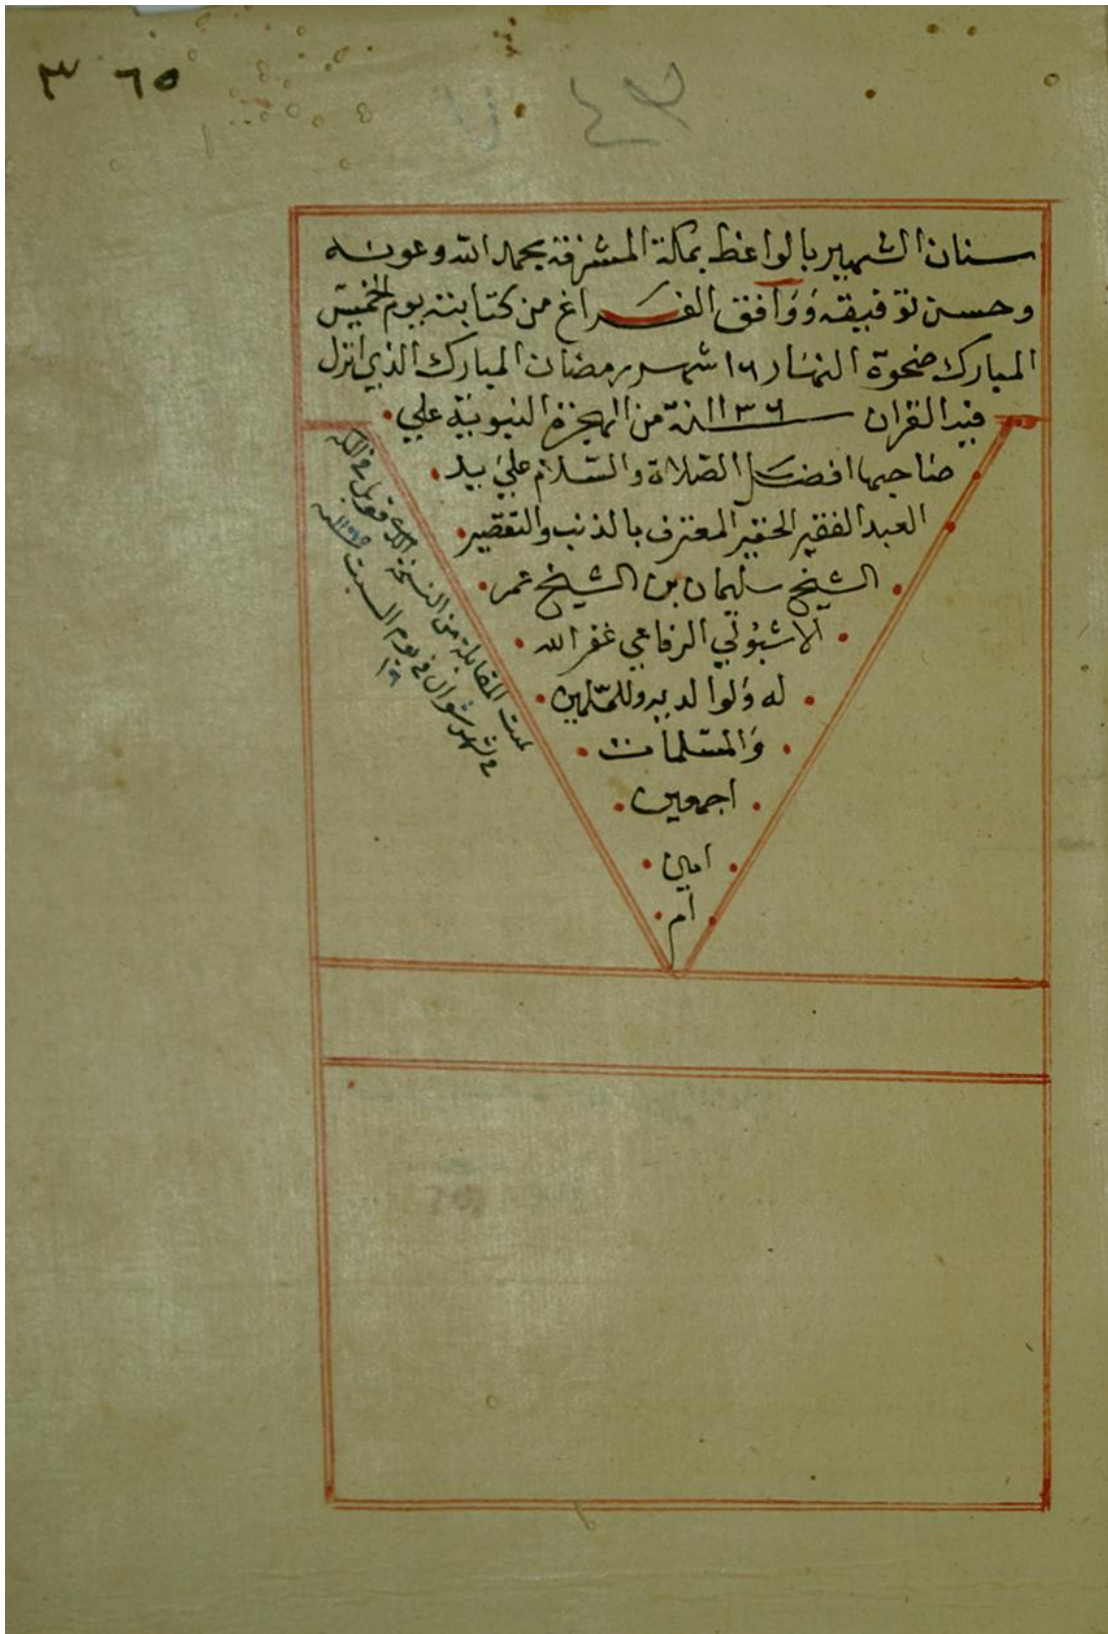 ٣ ٦٥
سنان الشهير بالواعظ بمكة المشرفة بحمد الله وعونه
وحسن توفيقه ووافق الفراغ من كتابته يوم الخميس
المبارك ضحوة النهار ١٦ شهر رمضان المبارك الذي انزل
فيه القران سنة ١١٣٦ من الهجرة النبوية علي
صاحبها افضل الصلاة والسلام علي يد
العبد الفقير الحقير المعترف بالذنب والتقصير
الشيخ سليمان بن الشيخ عمر
الاشبولي الرفاعي غفر الله
له ولوالديه وللمسلمين
والمسلمات
اجمعين
امين
ام
تمت المقابلة من النسخة
في شهر شوال في يوم السبت
١٦